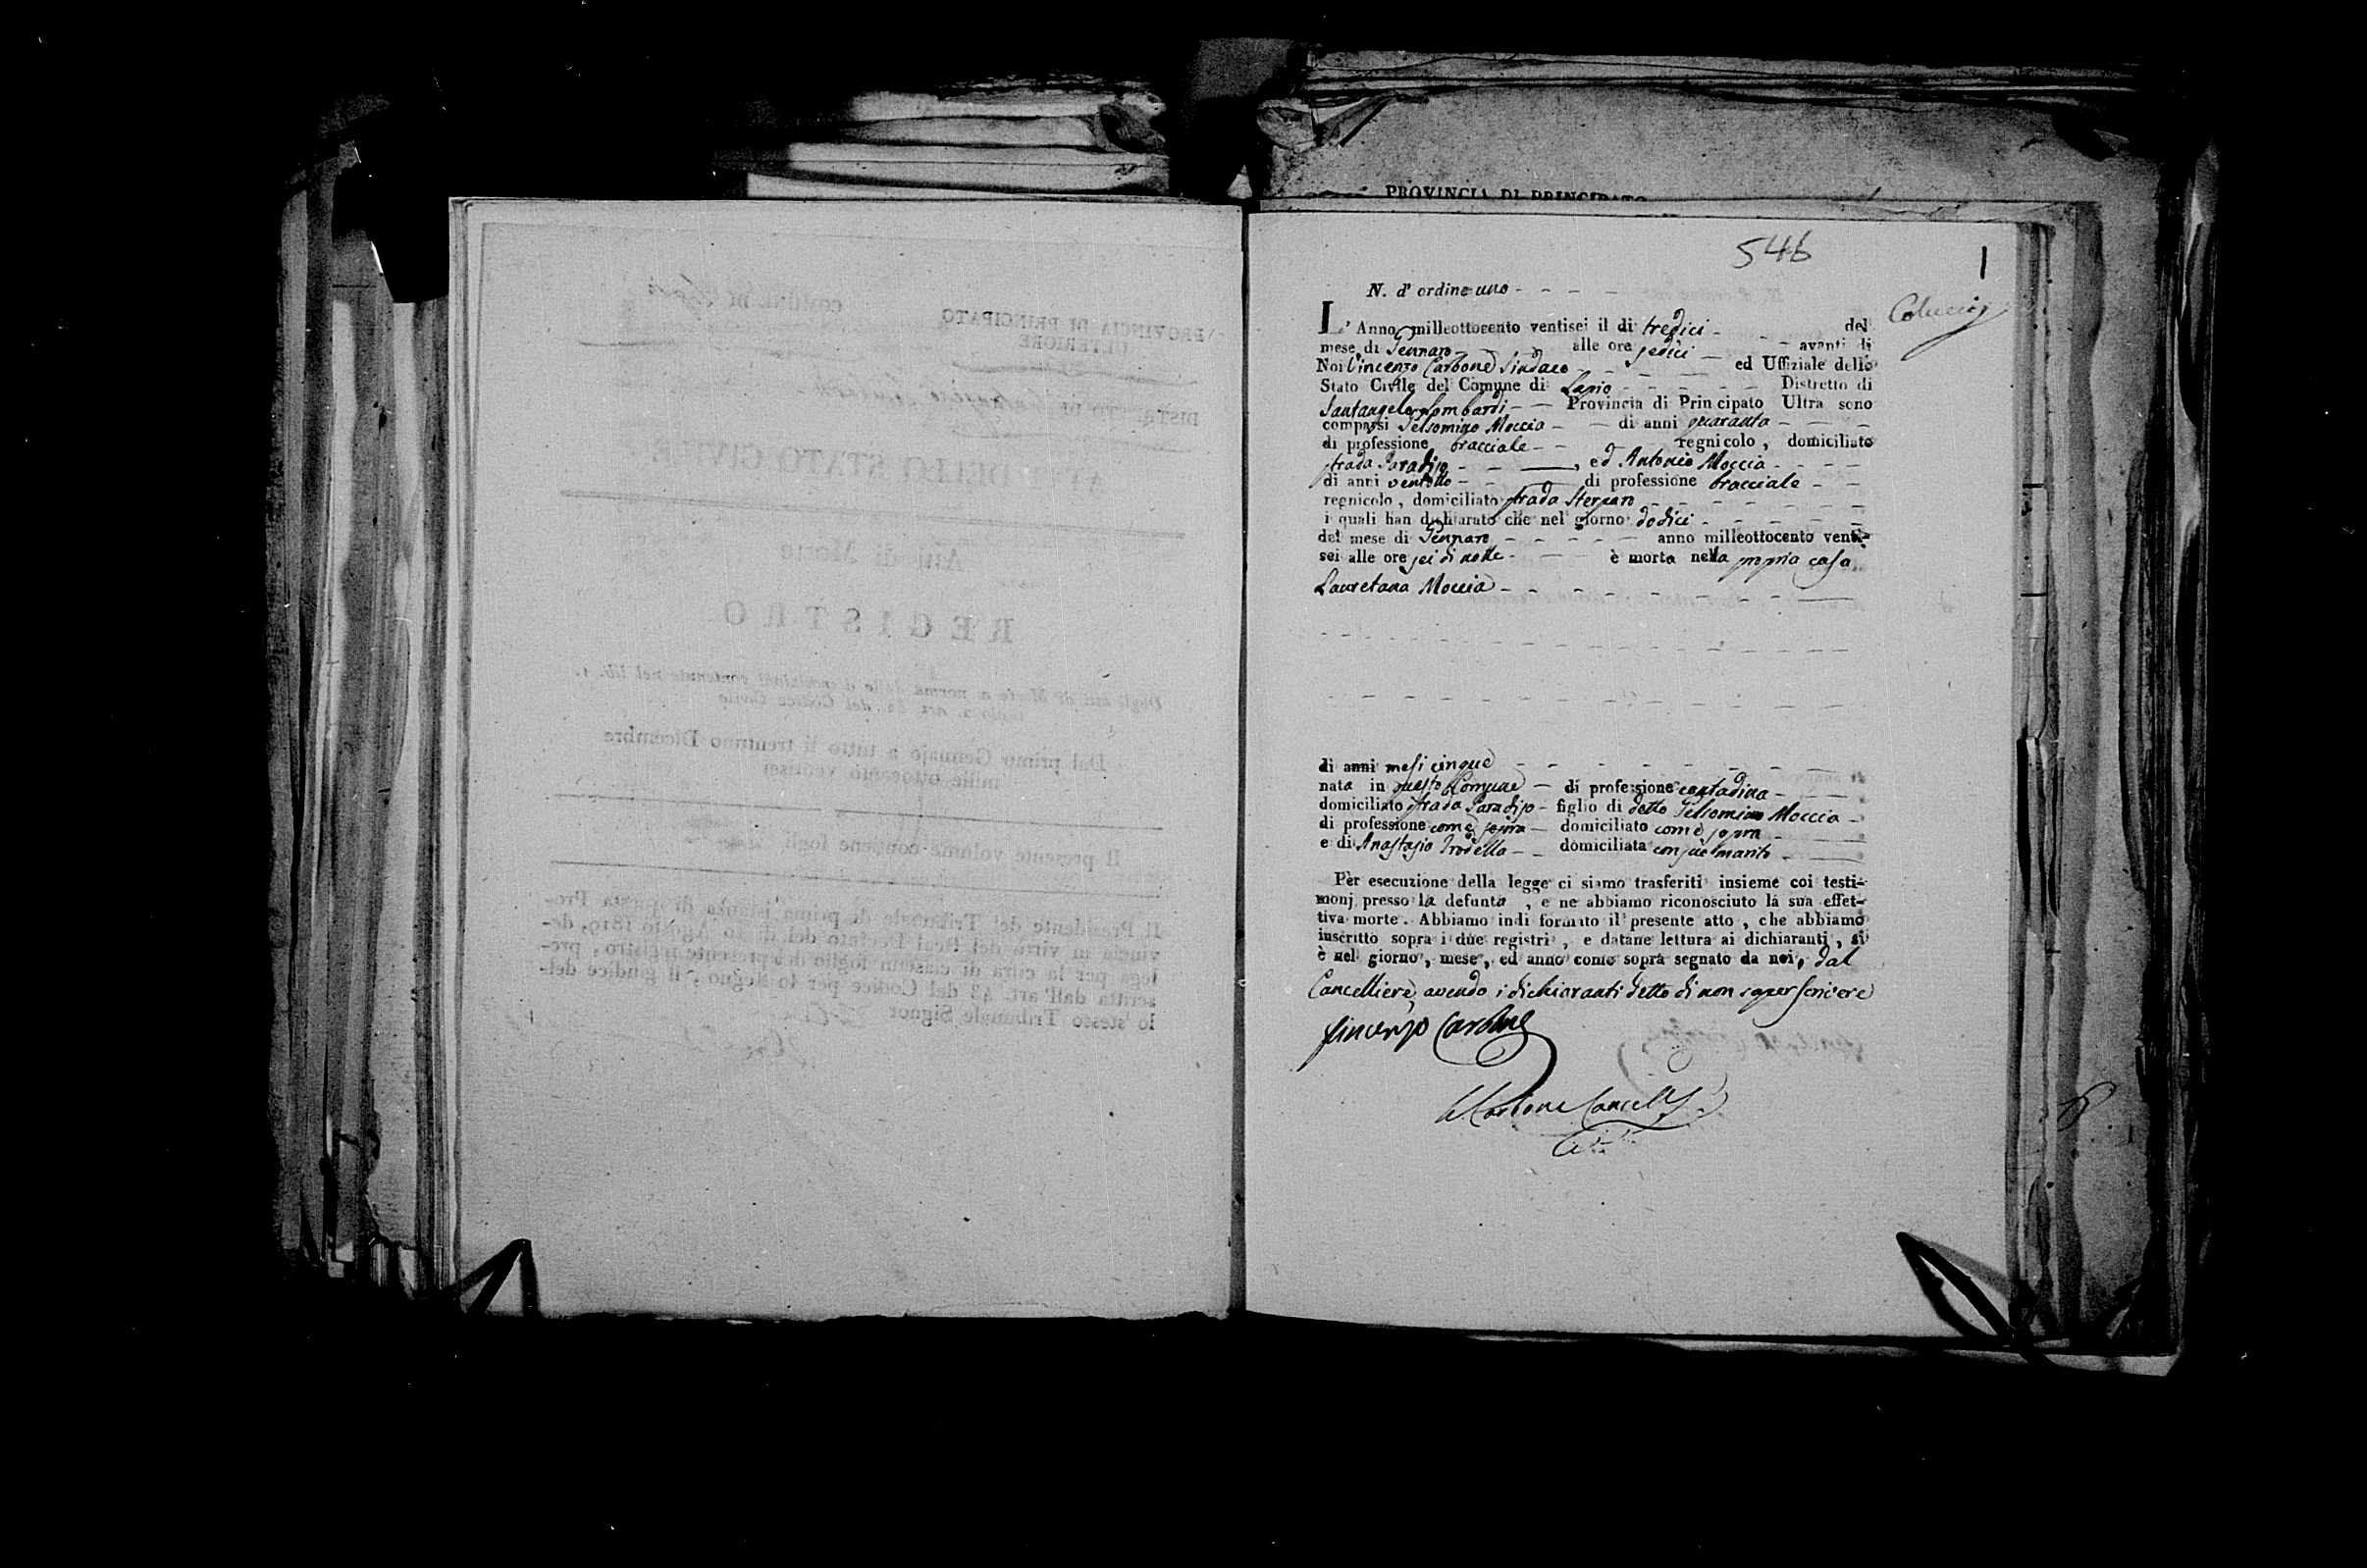 PROVINCIA DI PRINCIPATO
546
1
Coluccij
N. d' ordine uno
L' Anno milleottocento ventisei il di tredici del
mese di Gennaro alle ore sedici avanti di
Noi Vincenzo Carbone Sindaco ed Uffiziale dello
Stato Civile del Comune di Lapio Distretto di
Santangelo Lombardi Provincia di Principato Ultra sono
comparsi Gelsomino Moccia di anni quaranta
di professione bracciale regnicolo, domiciliato
strada Paradiso, ed Antonio Moccia
di anni ventotto di professione bracciale
regnicolo, domiciliato strada
i quali han dichiarato che nel giorno dodici
del mese di Gennaro anno milleottocento venti-
sei alle ore sei di notte è morta nella propria casa
Lauretana Moccia
di anni mesi cinque
nata in questo Comune di professione contadina
domiciliato strada Paradiso figlio di detto Gelsomino Moccia
di professione come sopra domiciliato come sopra
e di Anastasio Trodella domiciliata con suo marito
Per esecuzione della legge ci siamo trasferiti insieme coi testi-
monj presso la defunta, e ne abbiamo riconosciuto la sua effet-
tiva morte. Abbiamo indi formato il presente atto, che abbiamo
inscritto sopra i due registri, e datane lettura ai dichiaranti, si
è nel giorno, mese, ed anno come sopra segnato da noi, dal
Cancelliere, avendo i dichiaranti detto di non saper scrivere
Vincenzo Carbone
Carbone Cancell
COMUNE DI Lapio
PROVINCIA DI PRINCIPATO
ULTERIORE
ATTI DELLO STATO CIVILE
Atti di Morte
REGISTRO
Dal primo Gennajo a tutto li trentuno Dicembre
mille ottocento ventisei
Il presente volume contiene fogli
Il Presidente del Tribunale di prima istanza di questa Pro-
lo stesso Tribunale Signor